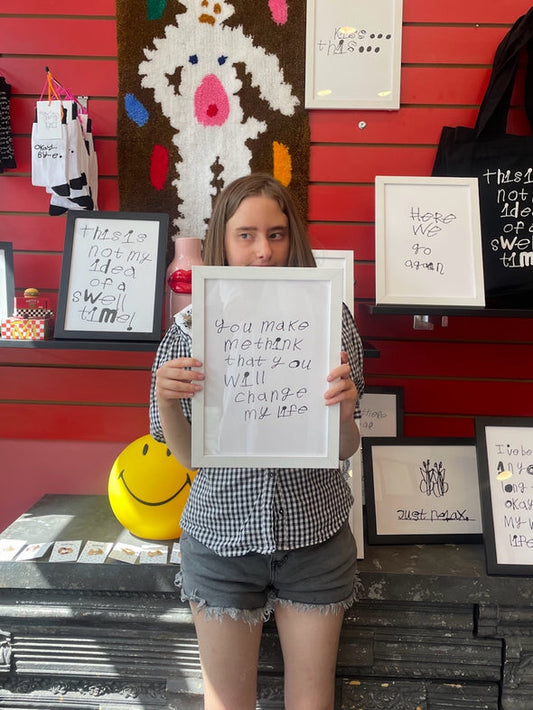 Kiss
this....
okay
Bye.
this is
not my
idea
of a
swell
time!
Here
We
go
again
this
not
idea
of a
swell
time
you make
me think
that you
will
change
my life
Just relax.
I've be
okay
my w
life